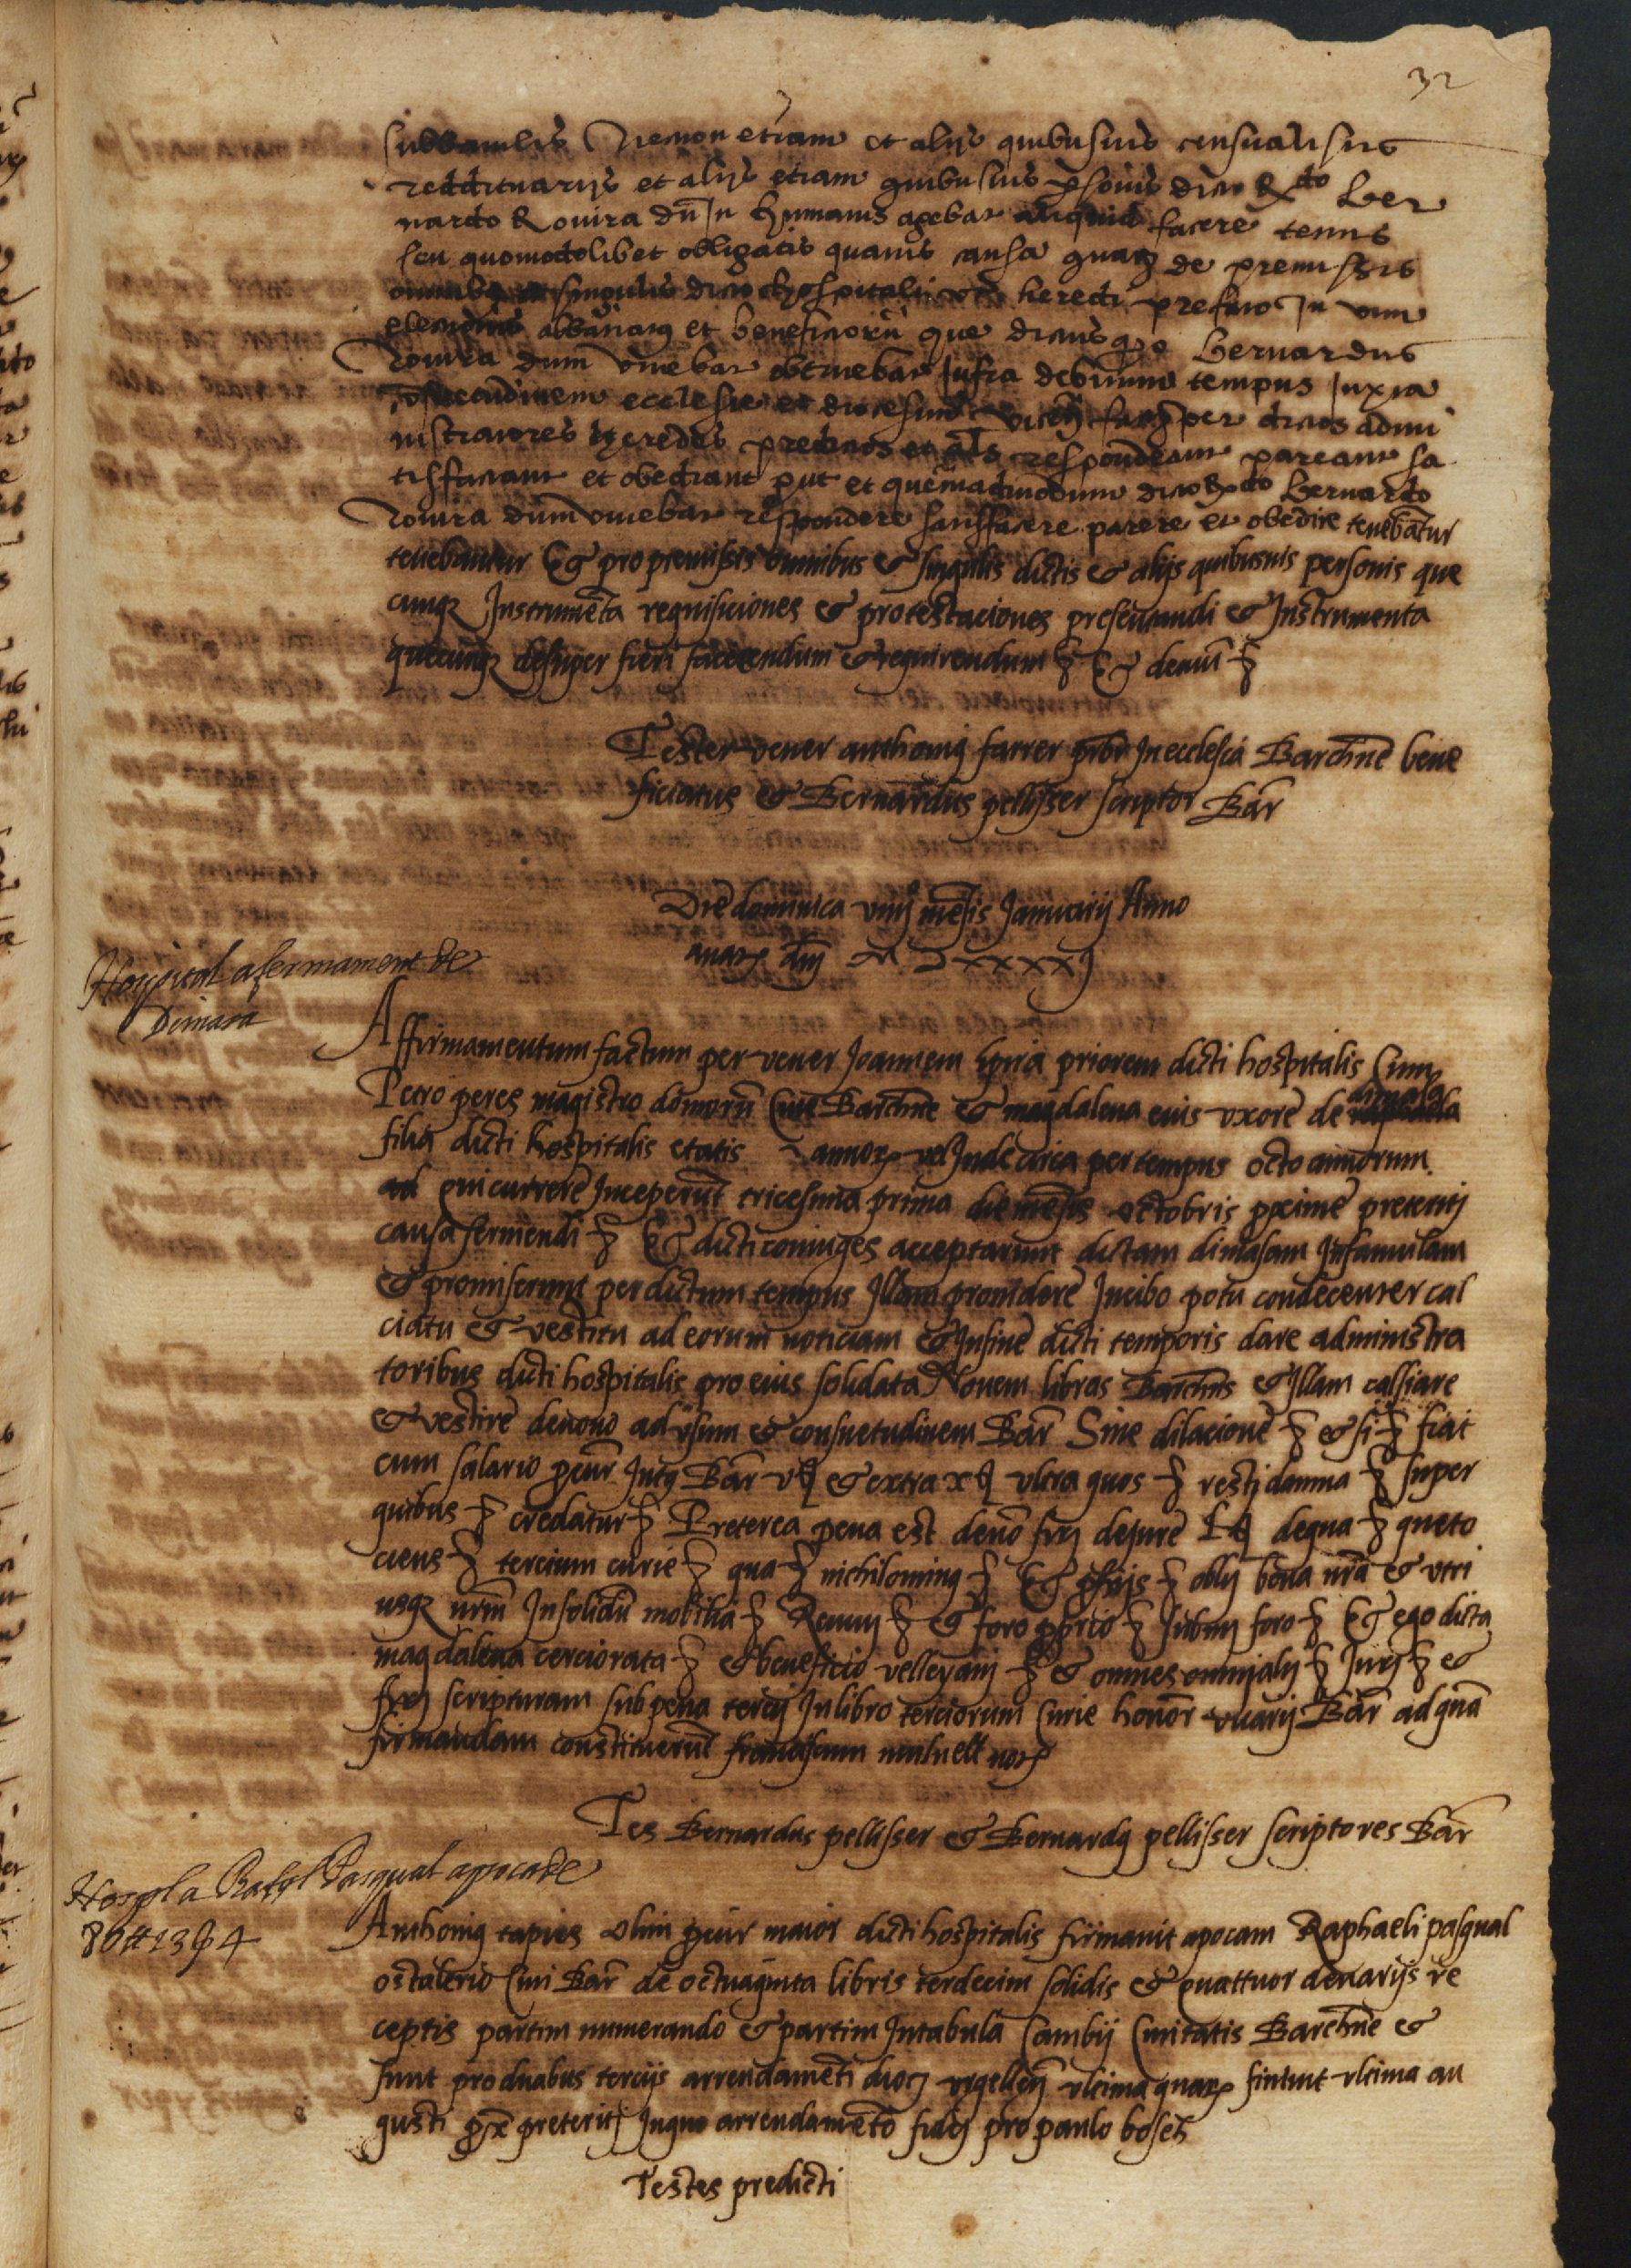 32
Necnon etiam et alijs quibusuis censualistis
reddituarijs et alijs etiam quibusuis psonis dicto Rdo Ber
nardo Rouira dū In humanis agebat aliquid facere tentis
seu quomodolibet obligatis quauis causa quaq de premissis
omnibq et singulis dicto hospitali vti heredi prefato In vim
elemosine abbaciarq et beneficiorū que dictus qo Bernardus
Rouira dum viuebat obtinebat Infra debitum tempus Iuxta
ecclesie et diocesim per dictos admi
nistratores heredes predictos et als respondeant pareant sa
tisfaciant et obediant put et quemadmodum dicto Rdo Bernardo
Rouira dum viuebat respondere satisfacere parere et obedire tenebātur
tenebantur Et pro premissis omnibus & singulis dictis & alijs quibusuis personis que
cunqz Instrumēta requisiciones & protestaciones presentandi & Instrumenta
quecunqz desuper fieri faciendum & requirendum Et demū
Testes vener anthoniq farrer prbr In ecclesia Barchinē bene
ficiatus & Bernardus pellisser scriptor Bar
Die dominica viiij mēsis Januarij Anno
a natq dnj M D xxxxxj
Hospital afermament de
Dimasa
Affirmamentum factum per vener Joannem spria priorem dicti hospitalis Cum
Petro peres magistro domorū Ciue Barchinē & magdalena eius vxore de dimasa
filia dicti hospitalis etatis annorq vel Inde circa per tempus octo annorum
qui currere Inceperūt tricesima prima die mesis octobris pxime preteritj
causa seruiendi Et dicti coniuges acceptarunt dictam dimasam In famulam
& promiserunt per dictum tempus Illam prouidere In cibo potu condecenter cal
ciatu & vestitu ad eorum noticiam & In fine dicti temporis dare administra
toribus dicti hospitalis pro eius solidata Nouem libras Barchns & Illam calsiare
& vestire de nouo ad vsum & consuetudinem Bar Sine dilacione & si fiat
cum salario pcur Intq Bar v & extra x vltra quos restj damna super
quibus credatur Preterea pena est deuō scrj de jure L de qua queto
ciens tercium curie qua nichilominq Et obly bona nra & vtri
usqz nrm In solidū mobilia Renuy & foro pprio submj foro Et ego dicta
magdalena cerciorata & beneficio velleyanj & omnes omnialj Jurj &
scripturam sub pena tercij In libro terciorum Curie honor vicarij Bar ad quā
firmandam constituerūt franciscum mulnell notq
Tes Bernardus pellisser & Bernardq pellisser scriptores Bar
Hospl a Rafel Pasqual apoca de
80 ₶ 13 ß 4
Anthoniq tapies olim pcur maior dicti hospitalis firmauit apocam Raphaeli pasqual
ostalerio Ciui Bar de octuaginta libris terdecim solidis & quattuor denarijs re
ceptis partim numerando & partim In tabula Cambij Ciuitatis Barchinē &
sunt pro duabus tercijs arrendamēti diocj vrgelleñ vltima quarq finiuit vltima au
gusti px preteritj In quo arrendamēto fidej pro paulo boses
Testes predicti